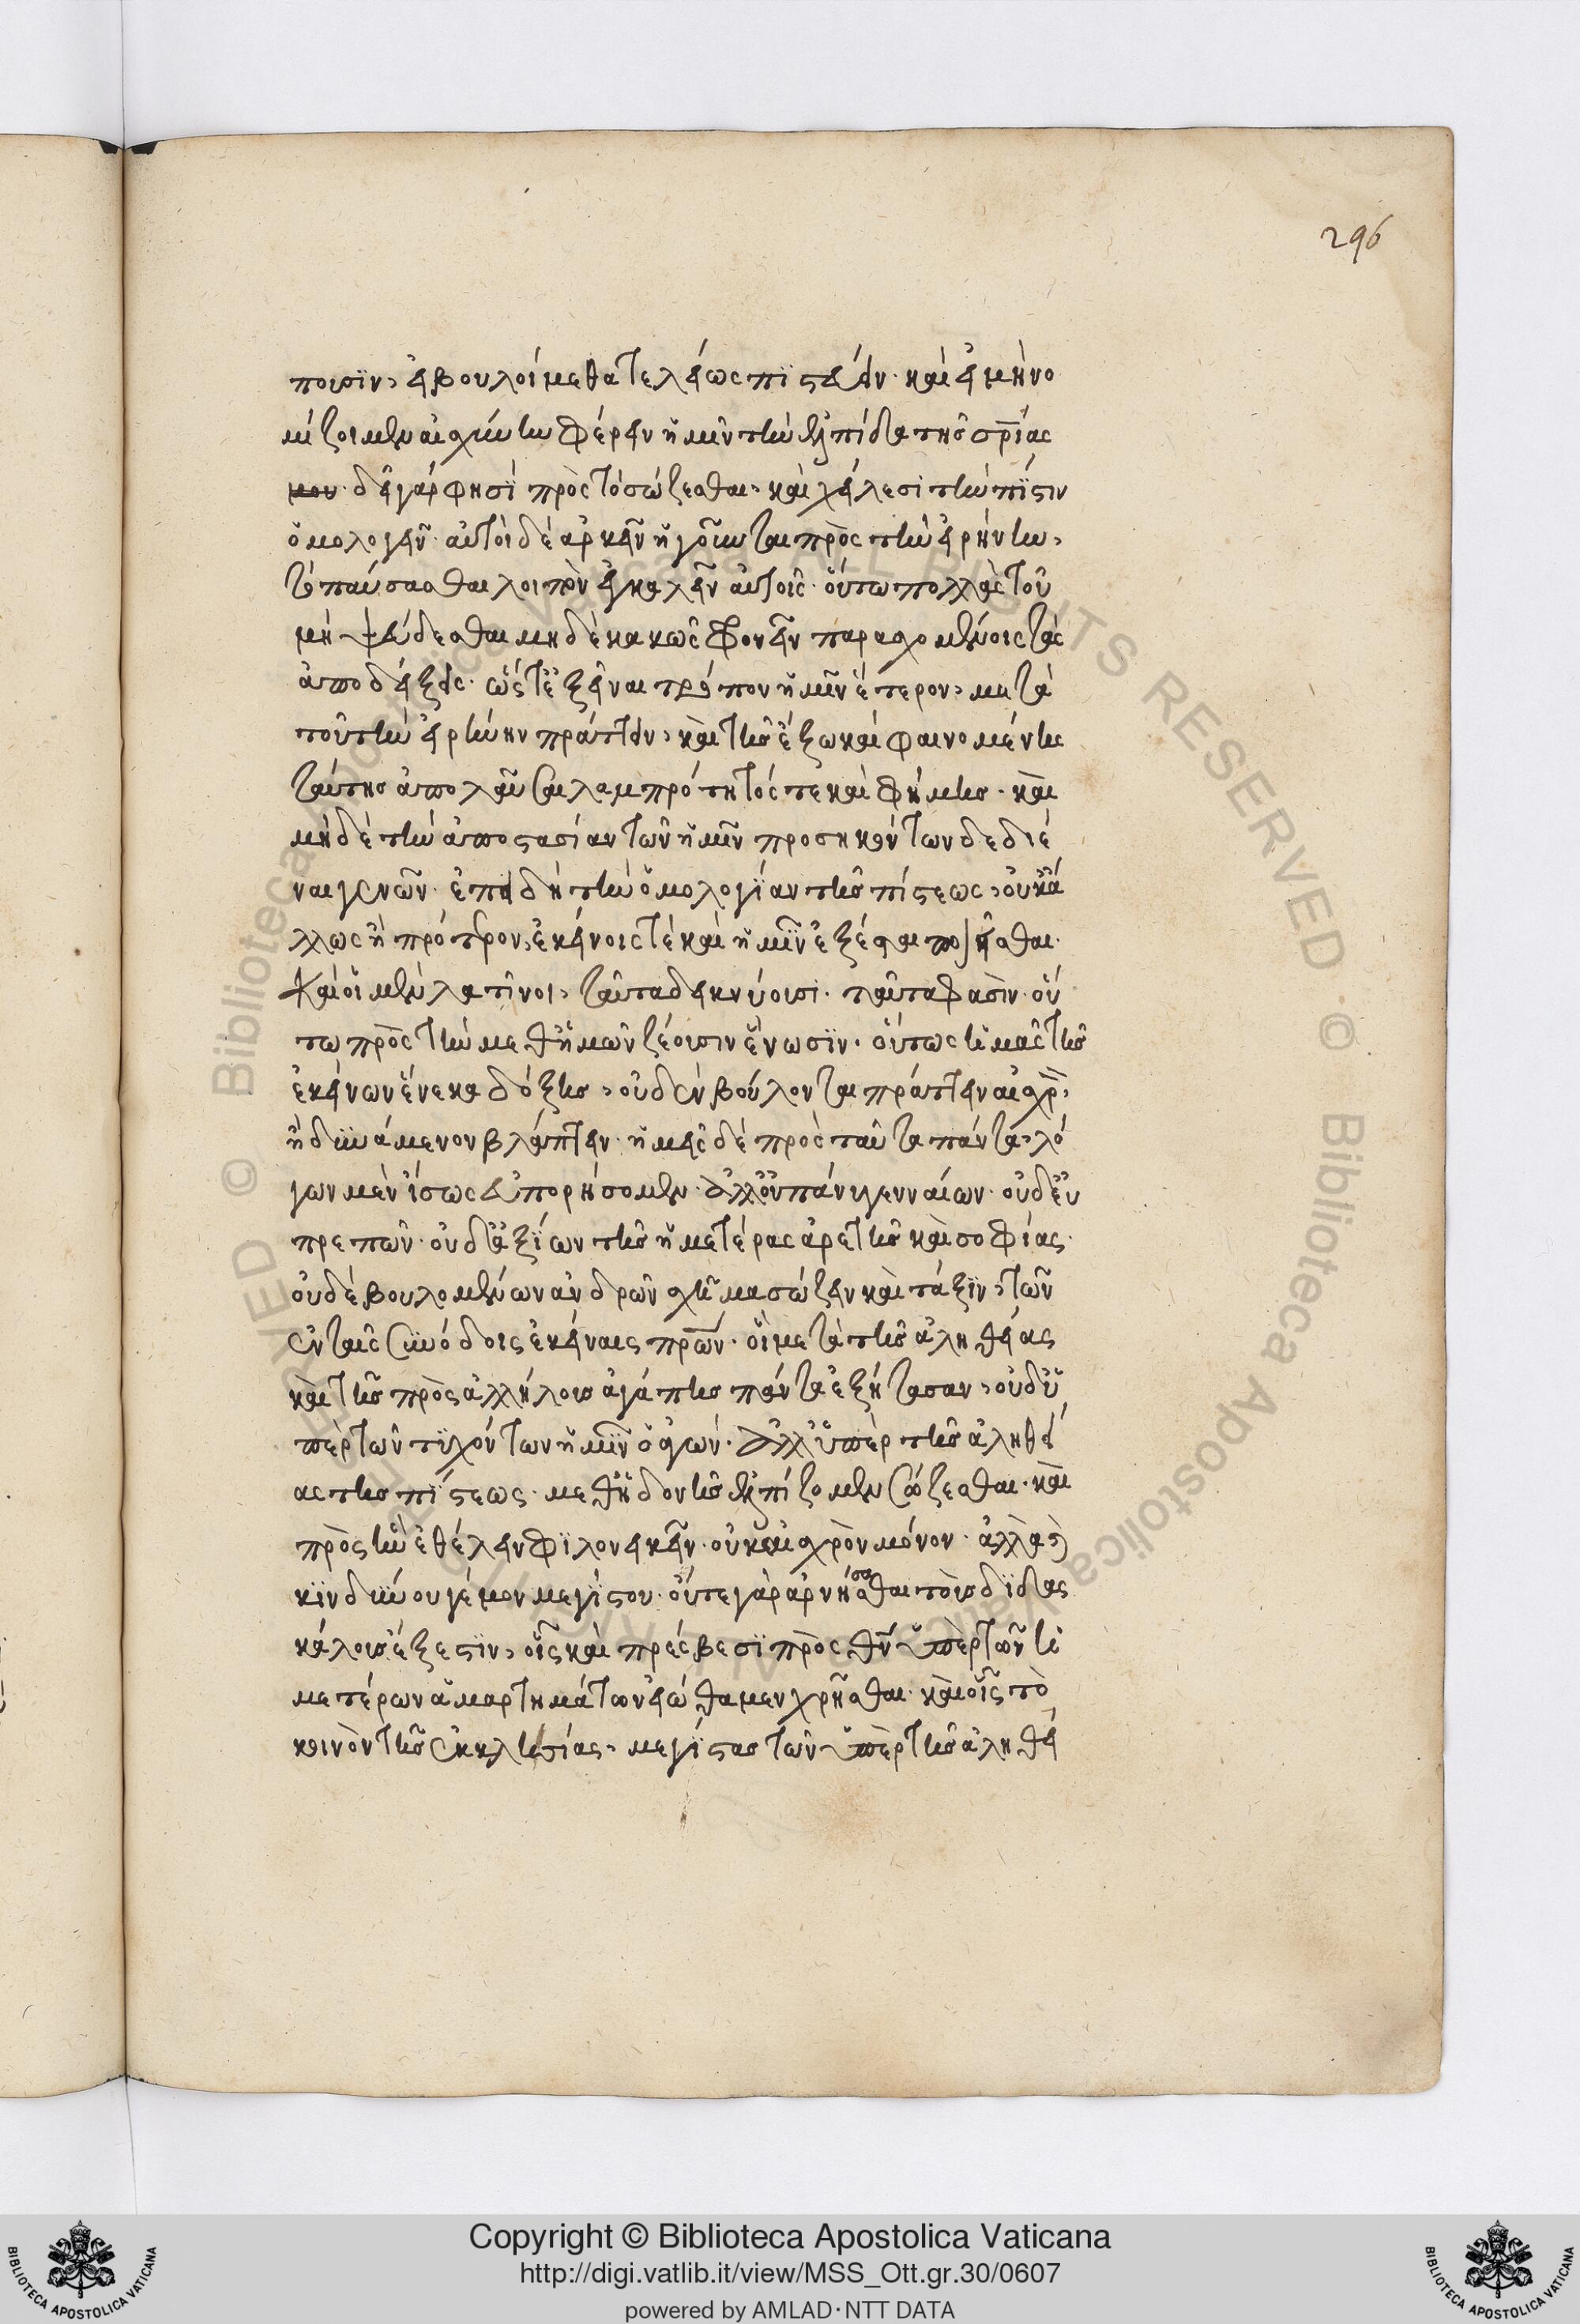 296
ποιοῖν, εἰ βουλοίμεθα τελείως πιστεύειν· καὶ εἰ μὴ νο
μίζοιμεν αἰσχύνην φέρειν ἡμῖν τὴν ἐλπίδα τῆς σρίας
μου· δεῖ γάρ φησι πρὸς τὸ σώζεσθαι, καὶ χείλεσι τὴν πίστιν
ὁμολογεῖν· αὐτοὶ δὲ ἀρκεῖν ἡγοῦνται πρὸς τὴν εἰρήνην,
τὸ παύσασθαι λοιπὸν ἐγκαλεῖν αὐτοῖς· οὕτω πολλὰς τοῦ
μὴ ψεύδεσθαι μηδὲ κακῶς φρονεῖν παρασχομένοις τὰς
ἀποδείξεις· ὥστ' ἐξεῖναι τρόπον ἡμῖν ἕτερον, μετὰ
τοῦ τὴν εἰρήνην πράττειν, καὶ τῆς ἔξω καὶ φαινομένης
ταύτης ἀπολαῦσαι λαμπρότητός τε καὶ φήμης· καὶ
μηδὲ τὴν ἀποστασίαν τῶν ἡμῖν προσηκόντων δεδιέ
ναι γενῶν· ἐπειδὴ τὴν ὁμολογίαν τῆς πίστεως, οὐκ ἄ
λλως ἢ πρότερον, ἐκείνοις τὲ καὶ ἡμῖν ἐξέσται ποιεῖσθαι·
Καὶ οἱ μὲν λατῖνοι, ταῦτα δεικνύουσι· ταῦτα φασὶν· οὕ
τω πρὸς τὴν μεθ' ἡμῶν ζέουσιν ἕνωσιν· οὕτως ἡμᾶς τῆς
ἐκείνων ἕνεκα δόξης, οὐδὲν βούλονται πράττειν αἰσχρὸν,
ἢ δυνάμενον βλάπτειν· ἡμεῖς δὲ πρὸς ταῦτα πάντα, λό
γων μὲν ἴσως εὐπορήσομεν· ἀλλ' οὐ πάνυ γενναίων· οὐδ' εὐ
πρεπῶν· οὐδ' ἀξίων τῆς ἡμετέρας ἀρετῆς καὶ σοφίας·
οὐδὲ βουλομένων ἀνδρῶν σχῆμα σώζειν καὶ τάξιν, τῶν
ἐν ταῖς συνόδοις ἐκείναις πρων· οἳ μετὰ τῆς ἀληθείας
καὶ τῆς πρὸς ἀλλήλους ἀγάπης πάντα ἐξήτασαν, οὐδ' ὑ
πὲρ τῶν τυχόντων ἡμῖν ὁ ἀγών· ἀλλ' ὑπὲρ τῆς ἀληθεί
ας τῆς πίστεως· μεθ' ἧς δοντες ἐλπίζομεν σώζεσθαι· καὶ
πρὸς ἣν ἐθέλειν φιλονεικεῖν· οὐκ αἰσχρὸν μόνον· ἀλλὰ καὶ
κινδύνου γέμον μεγίστου· οὔτε γὰρ ἀρνήσασθαι τοὺς διδας
κάλους ἔξεστιν, οἷς καὶ πρέσβεσι πρὸς θν ὑπὲρ τῶν ἡ
μετέρων ἁμαρτημάτων εἰώθαμεν χρῆσθαι· καὶ οἷς τὸ
κοινὸν τῆς ἐκκλησίας, μεγίστας τῶν ὑπὲρ τῆς ἀληθεί
Copyright © Biblioteca Apostolica Vaticana
http://digi.vatlib.it/view/MSS_Ott.gr.30/0607
powered by AMLAD·NTT DATA